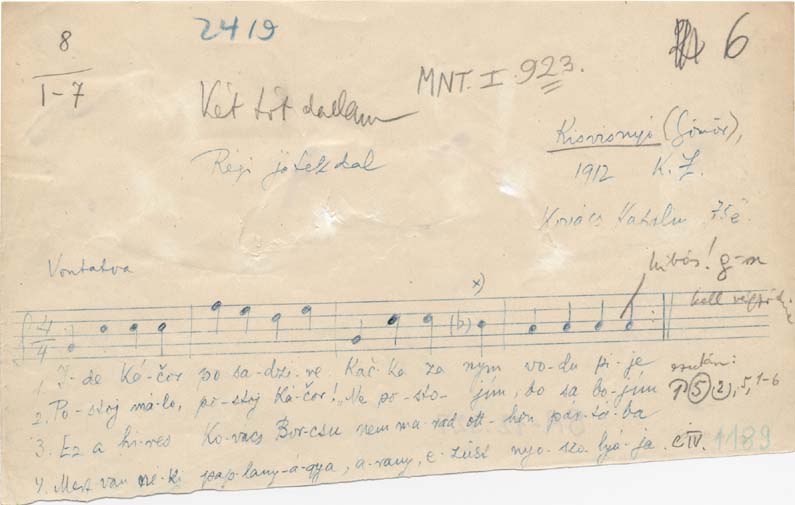 8
1-7
2419
6
MNT. I. 923.
Két tót dallam
Régi játékdal
Kisvisnyó (Gömör),
1912 K. Z.
Kovács Katalin 75 é.
Vontatva
hibás! g-n
kell végződnie
x)
4/4
(b)
1. I-de Ká-čor po sa-dzi-ne Kač-ka za nym vo-du pi-je
2. Po-stoj má-lo, po-stoj Ká-čor! Ne po-sto-jím, bo sa bo-jím
3. Ez a hi-res Ko-vács Bor-csu nem ma-rad ott-hon pár-tá-ba
4. Mert van né-ki pap-lany-á-gya, a-rany, e-züst nyo-szo-lyá-ja.
ezután:
1 5 2, 5, 1-6
CIV.
1189